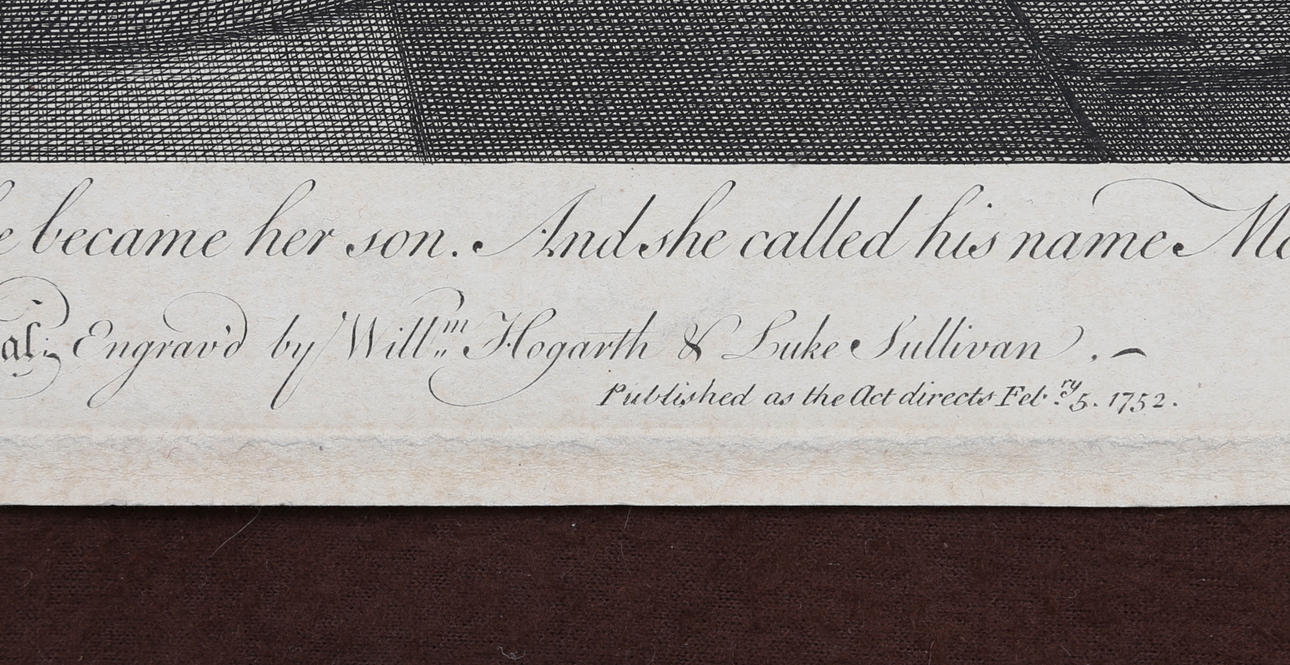 became her son. And she called his name
Engrav'd by Will.m Hogarth & Luke Sullivan.
Published as the Act directs Feb.ry 5. 1752.